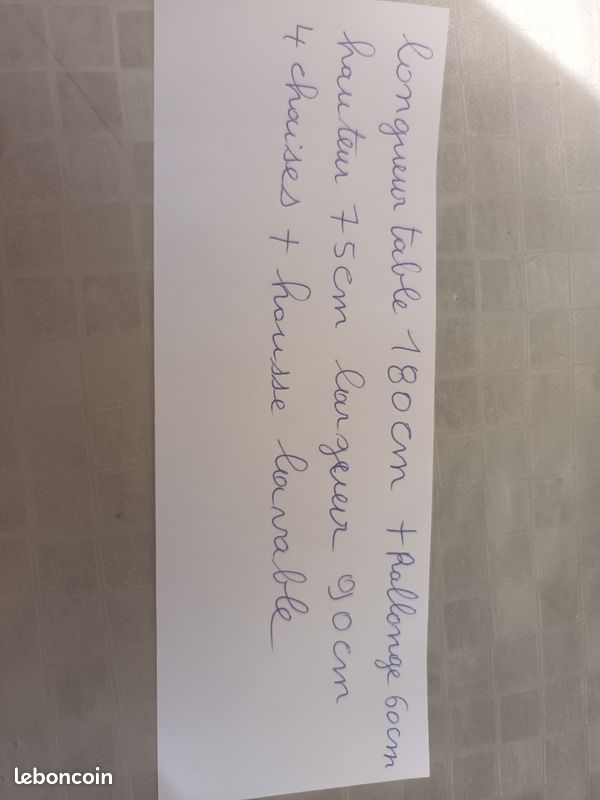 longueur table 180cm + Rallonge 60cm
hauteur 75cm largeur 90cm
4 chaises + housse lavable
leboncoin